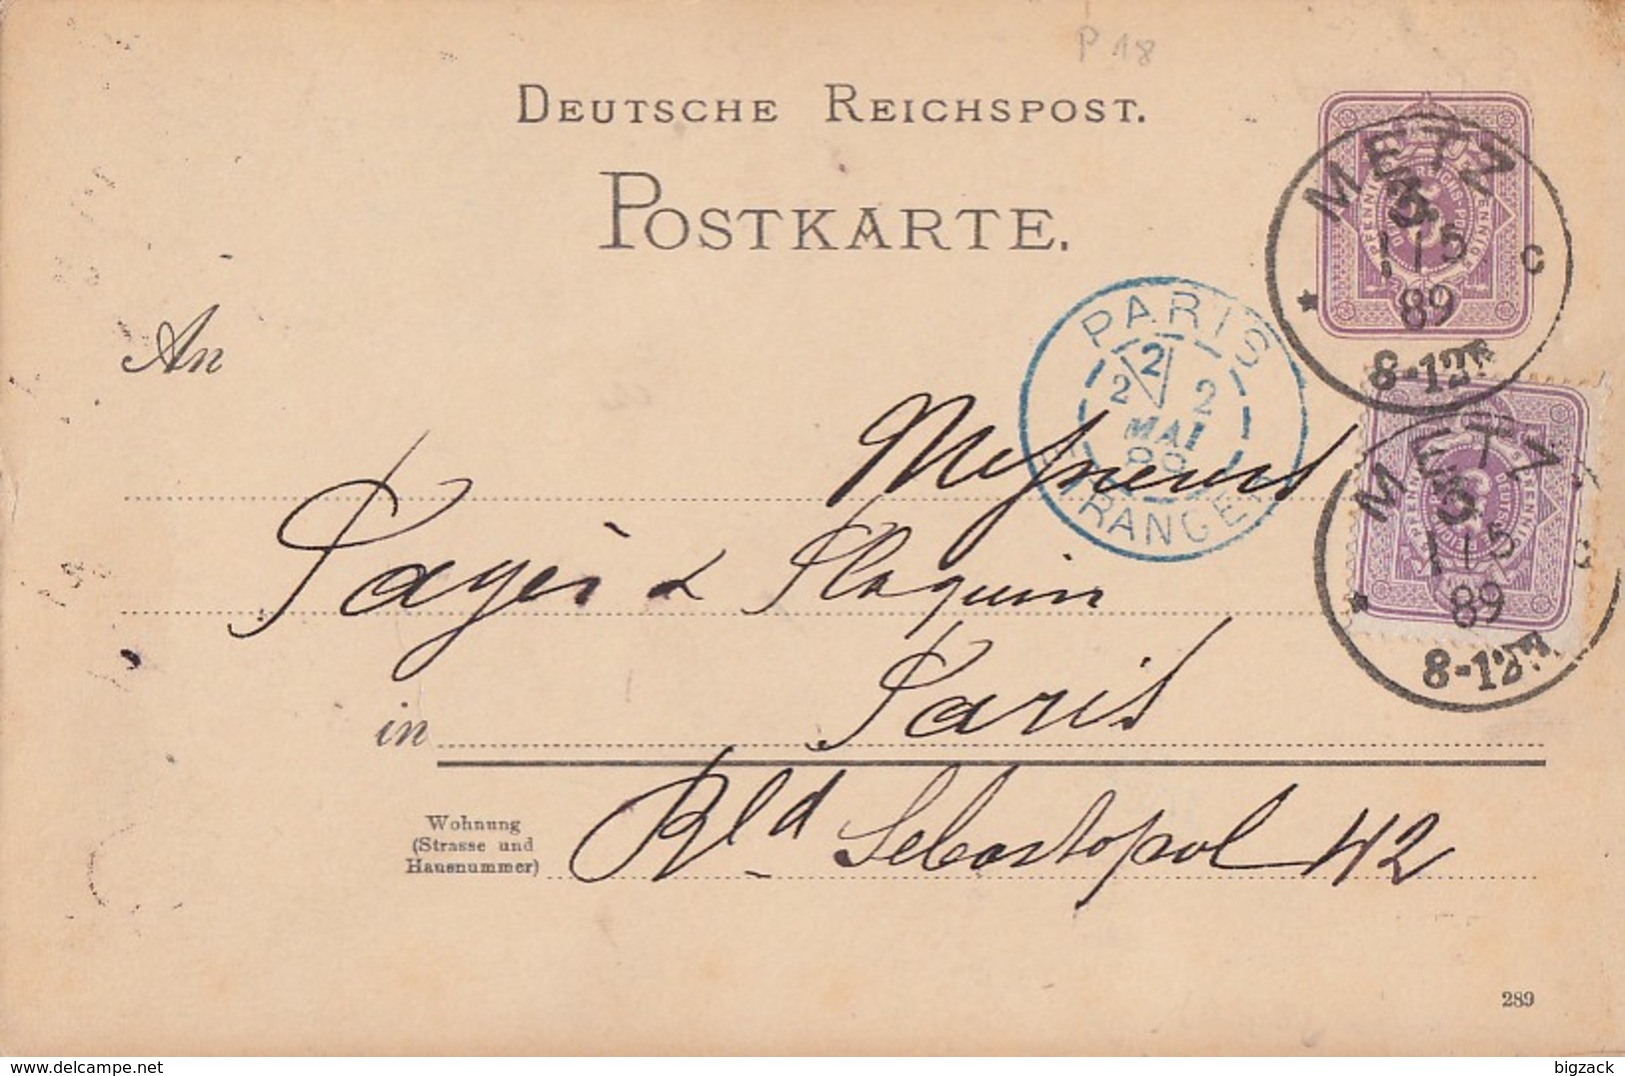 P 18
DEUTSCHE REICHSPOST.
POSTKARTE.
METZ
1 5
89
8-12
C
PARIS
2
2 2
MAI
ETRANGER
An
Messieurs
METZ
1 5
89
8-12
C
Pagès & Ploquin
in Paris
Wohnung
(Strasse und
Hausnummer)
Bld Sebastopol 42
289
delcampe.net
bigzack